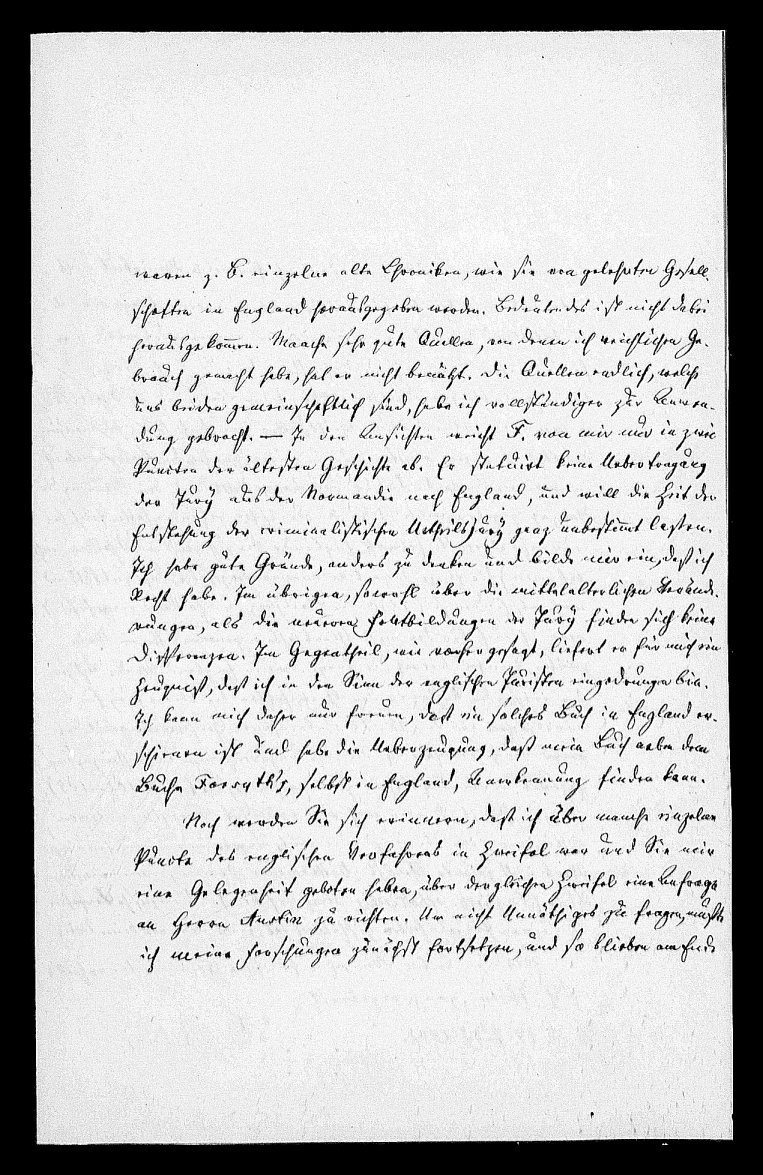 waren z. B. einzelne alte Chroniken, wie sie von gelehrten Gesell-
schaften in England herausgegeben werden. Bedeutendes ist nicht dabei
herausgekommen. Manche sehr gute Quellen, von denen ich reichlichen Ge-
brauch gemacht habe, hat er nicht benützt. Die Quellen endlich, welche
uns beiden gemeinschaftlich sind, habe ich vollständiger zur Anwen-
dung gebracht. — In den Ansichten weicht F. von mir nur in zwei
Puncten der ältesten Geschichte ab. Er statuirt keine Uebertragung
der Jury aus der Normandie nach England, und will die Zeit der
Entstehung der criminalistischen Urtheilsjury ganz unbestimmt lassen.
Ich habe gute Gründe, anders zu denken und bilde mir ein, daß ich
Recht habe. Im übrigen, sowohl über die mittelalterlichen Verände-
rungen, als die neueren Fortbildungen der Jury finden sich keine
Differenzen. Im Gegentheil, wie vorher gesagt, liefert er für mich ein
Zeugniß, daß ich in den Sinn der englischen Juristen eingedrungen bin.
Ich kann mich daher nur freuen, daß ein solches Buch in England er-
schienen ist und habe die Ueberzeugung, daß mein Buch neben dem
Buche Forsyth's, selbst in England, Anerkennung finden kann.
Noch werden Sie sich erinnern, daß ich über manche einzelne
Puncte des englischen Verfahrens in Zweifel war und Sie mir
eine Gelegenheit geboten haben, über dergleichen Zweifel eine Anfrage
an Herrn Austin zu richten. Um nicht Unnöthiges zu fragen, mußte
ich meine Forschungen zunächst fortsetzen, und so blieben am Ende